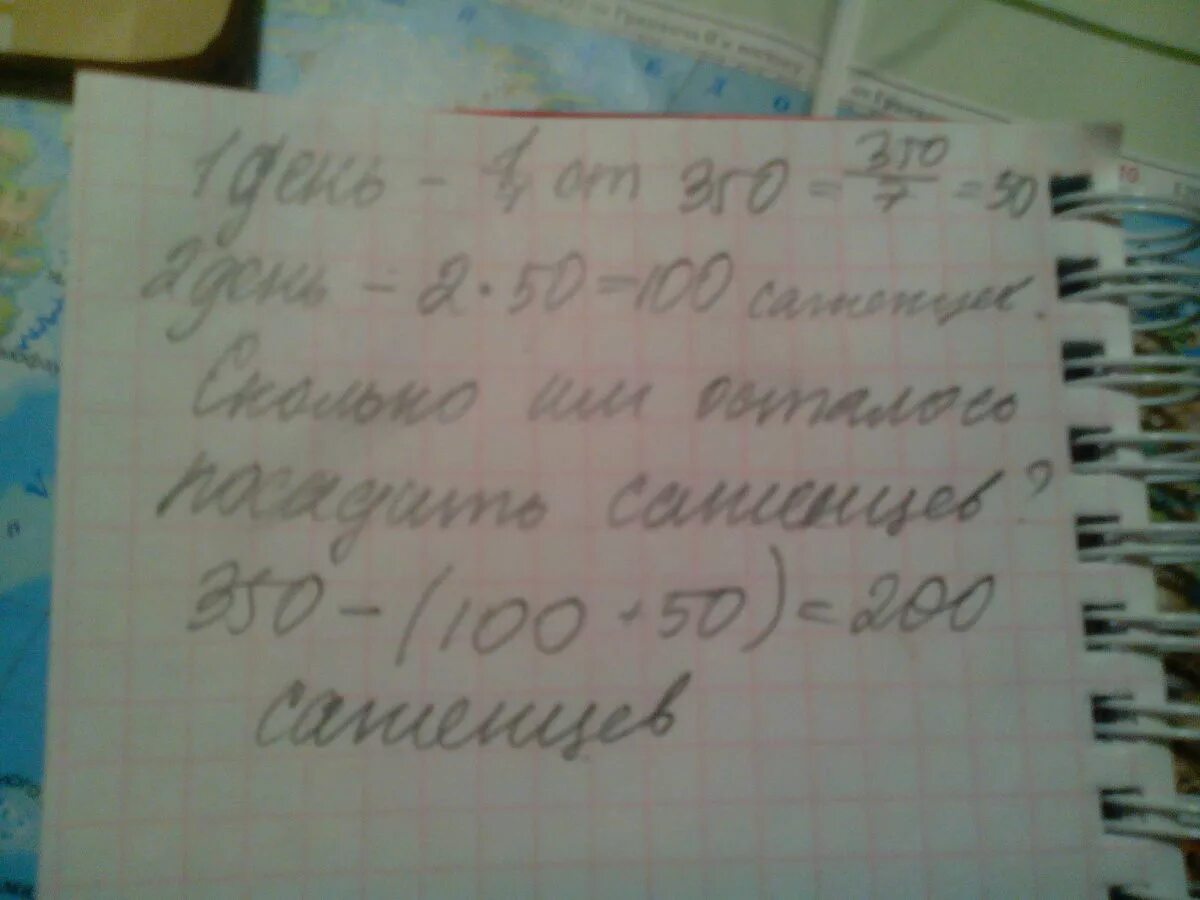 1 день - 1/7 от 350 = 350/7 = 50
2 день - 2 · 50 = 100 саженцев.
Сколько им осталось
посадить саженцев?
350 - (100 + 50) = 200
саженцев